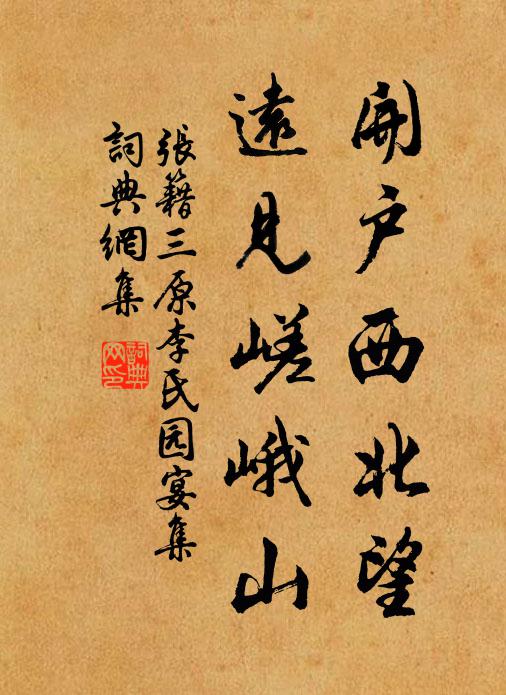 開户西北望
遠見嵯峨山
張籍三原李氏园宴集
詞典網集
詞典
网印